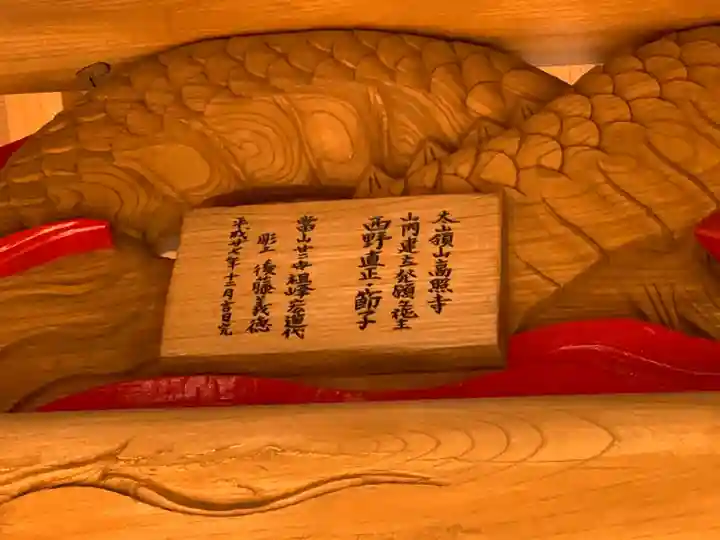 太嶺山高照寺
山門建立発願施主
西野直正・節子
当山廿二世祖峰宏道代
彫工後藤義徳
平成廿八年十二月吉日完